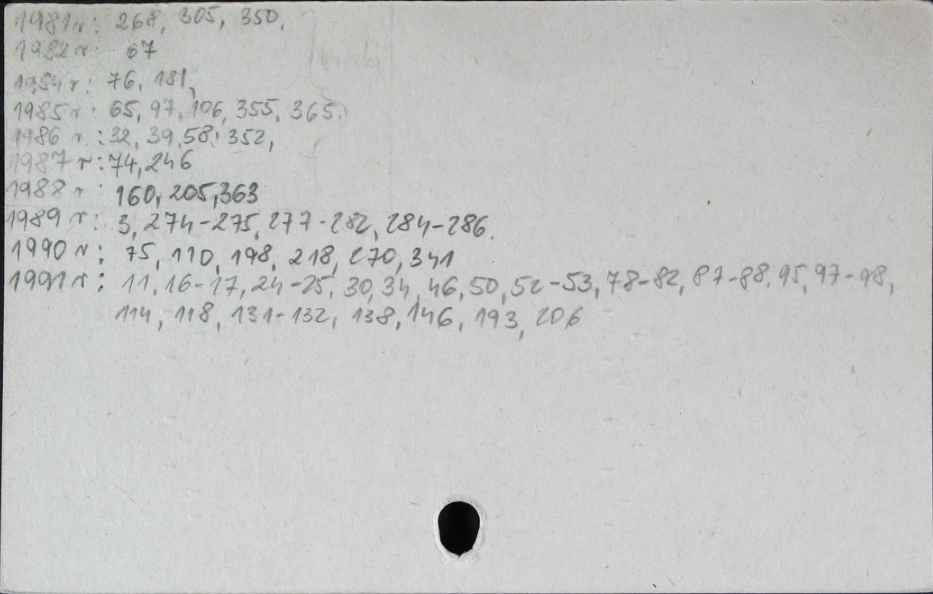 1981r: 268, 305, 350,
1982r: 67
1984r: 76, 181,
1985r: 65, 97, 106, 355, 365.
1986 r.: 32, 39, 58, 352,
1987r: 74, 246
1988r: 160, 205, 363
1989 r: 3, 274-275, 277-282, 284-286.
1990 r: 75, 110, 198, 218, 270, 341
1991r: 11, 16-17, 24-25, 30, 34, 46, 50, 52-53, 78-82, 87-88, 95, 97-98,
114, 118, 131-132, 138, 146, 193, 206